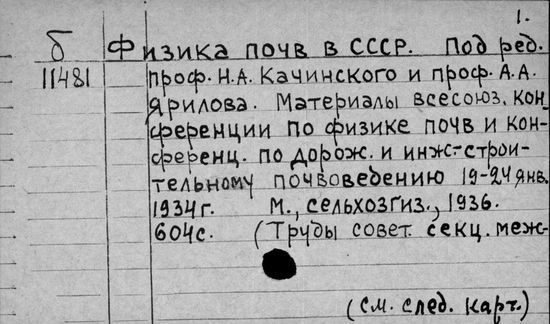 1.
б Физика почв в СССР. Под ред.
11481 проф. Н.А. Качинского и проф. А.А.
Ярилова. Материалы всесоюз. кон
ференции по физике почв и кон-
ференц. по дорож. и инж-строи-
тельному почвоведению 19-24 янв.
1934 г. М., сельхозгиз., 1936.
604 с. (Труды совет. секц. меж-
(см. след. карт.)